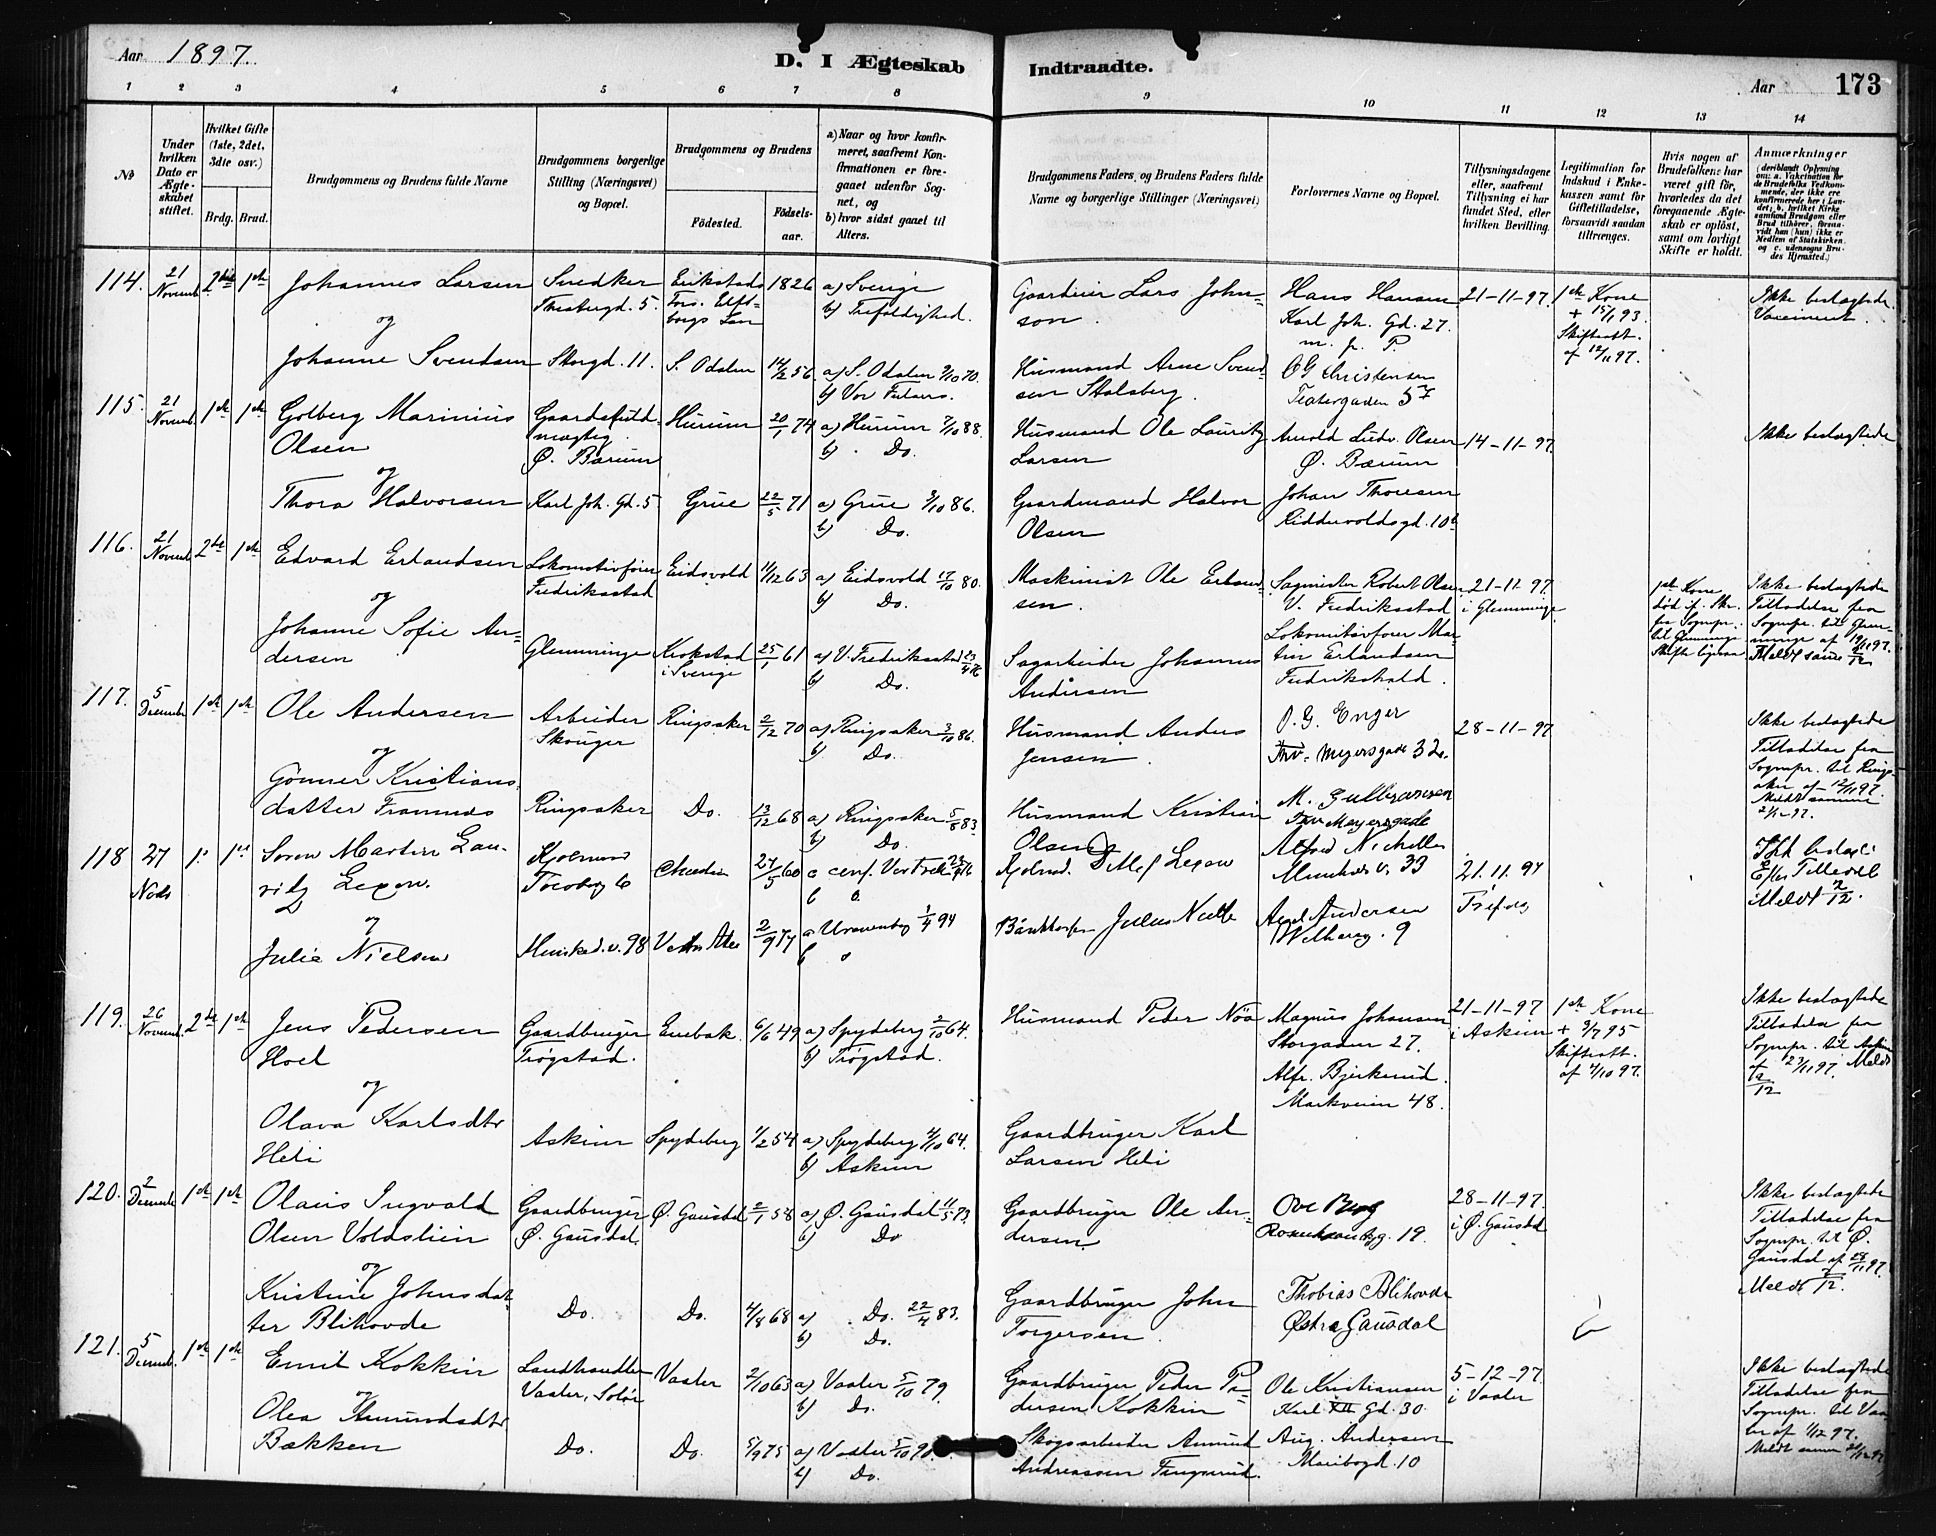 Aar 1897.
D. I Ægteskab Indtraadte.
Aar 173
1 2 3 4 5 6 7 8 9 10 11 12 13 14
No
Under hvilken Dato er Ægteskabet stiftet.
Hvilket Gifte (1ste, 2det, 3die osv.)
Brdg. Brud.
Brudgommens og Brudens fulde Navne
Brudgommens borgerlige Stilling (Næringsvei) og Bopæl.
Brudgommens og Brudens
Födested.
Födsels-aar.
a) Naar og hvor konfirmeret, saafremt Konfirmationen er foregaaet udenfor Sognet, og
b) hvor sidst gaaet til Alters.
Brudgommens Faders og Brudens Faders fulde Navne og borgerlige Stillinger (Næringsvei)
Forlovernes Navne og Bopæl.
Tillysningsdagene eller, saafremt Tillysning ei har fundet Sted, efter hvilken Bevilling.
Legitimation for Indskud i Enkekassen samt for Giftetilladelse, forsaavidt saadan tiltrænges.
Hvis nogen af Brudefolkene har været gift för, hvorledes da det foregaaende Ægteskab er oplöst, samt om lovligt Skifte er holdt.
Anmærkninger
(deriblandt Oplysning om: a. Vakcination for de Brudefolks Vedkommende, der ikke ere konfirmerede her i Landet; b. hvilket Kirkesamfund Brudgom eller Brud tilhörer, forsaavidt han (hun) ikke er Medlem af Statskirken, og c. udensogns Brudes Hjemsted.)
114. 21 Novemb. 2det 1ste Johannes Larsen Snedker Thesbergd. 5. 1826 a) Sverige b) Trefoldighed.
Gaardeier Lars Johnson. Hans Hansen Karl Joh. Gd. 27. m. f. P. 21-11-97. 1ste Kone + 15/1 93. Skifteatt. af 12/11 97. Ikke beslægtede. Vaccineret.
og
Johanne Svendsen Storgd. 11. S. Odalen 14/2 56 a) S. Odalen 9/10 70. b) Vor Frelsers.
Husmand Arne Svendsen Stalsberg. O G Christensen Teatergaden 37
115. 21 Novemb. 1ste 1ste Golberg Marinius Olsen Gaardsfuldmægtig Ø. Bærum Hurum 20/1 74 a) Hurum 7/10 88. b) Do.
Husmand Ole Lauritz Larsen Arnold Ludv. Olsen Ø. Bærum 14-11-97. Ikke beslægtede
og
Thora Halvorsen Karl Joh. Gd. 5 Grue 22/5 71 a) Grue 3/10 86. b) Do.
Gaardmand Halvor Olsen Johan Thoresen Riddervoldsgd. 10b
116. 21 Novemb. 2det 1ste Edvard Erlandsen Lokomotivfører Fredriksstad Eidsvold 11/12 63 a) Eidsvold 17/10 80. b) Do.
Maskinist Ole Erlandsen. Sagmester Robert Olsen V. Fredriksstad 21-11-97. i Glemminge
1ste Kone død if. Skr. fra Sognepr. til Glemminge
Ikke beslægtede Tilladelse fra Sognepr. til Glemminge af 19/11 97.
og
Johanne Sofie Andersen Glemminge Krokstad i Sverige 25/1 61 a) V. Fredriksstad b) Do.
Sagarbeider Johannes Andersen Lokomotivfører Martin Erlandsen Fredrikshald.
117. 5 Decembr 1ste 1ste Ole Andersen Arbeider Skouger Ringsaker 2/12 70 a) Ringsaker 3/10 86. b) Do.
Husmand Anders Jensen. O. G. Enger Thv. Meyersgade 32. 28-11-97
Ikke beslægtede Tilladelse fra Sognepr. til Ringsaker af 12/11 97. Meldt samme
og
Gønner Kristiansdatter Framnes Ringsaker Do. 13/12 68 a) Ringsaker 5/8 83. b) Do.
Husmand Kristian Olsen M. Gulbransen Thv Meyersgade
118 27 Novb 1ste Søren Martin Lauritz Lexow. 27/5 60 a conf. Vor Frels. b
Ditlef Lexow 21.11.97 Meldt 2/12.
og
Julie Nielsen 2/9 77 a Uranienborg 1/4 94
Axel Andersen 9
119. 26 Novemb. 2det 1ste Jens Pedersen Hoel Gaardbruger Trøgstad. Enebak. 6/6 49 a) Spydeberg 2/10 64. b) Trøgstad.
Husmand Peder Nøa Magnus Johansen Storgaden 27. Alfr. Bjerkerud. Markveien 48. 21-11-97 i Askim
1ste Kone + 9/7 95 Skifteatt. af 4/10 97.
Ikke beslægtede Tilladelse fra Sognepr. til Askim af 27/11 97. Meldt 12
og
Olava Karlsdtr Heli Askim Spydeberg 1/2 54 a) Spydeberg 4/10 64. b) Askim
Gaardbruger Karl Larsen Heli
120. 2 Decembr 1ste 1ste Olaus Ingvald Olsen Voldslien Gaardbruger Ø. Gausdal. Ø. Gausdal 2/1 58 a) Ø. Gausdal 11/5 73. b) Do
Gaardbruger Ole Andersen. Ove Berg Rosenkransg. 19. 28-11-97. i Ø. Gausdal
Ikke beslægtede Tilladelse fra Sognepr. til Ø. Gausdal af 28/11 97. Meldt 12.
og
Kristine Johnsdatter Blihovde Do. Do. 4/8 68 a) Do. 22/4 83. b) Do.
Gaardbruger John Torgersen. Thobias Blihovde Østre Gausdal
121. 5 Decemb. 1ste 1ste Emil Kokkin Landhandler Vaaler, Solør Vaaler 2/10 63 a) Vaaler 5/10 79. b) Do.
Gaardbruger Peder Pedersen Kokkin Ole Kristiansen Karl XII Gd. 30. 5-12-97. i Vaaler
Ikke beslægtede Tilladelse fra Sognepr. til Vaaler af 1/12 97.
og
Olea Amundsdtr Bakken Do. Do. 5/9 75 a) Vaaler 5/10 90. b) Do.
Skogsarbeider Amund Andreassen Aug. Andersen Maribogd. 10